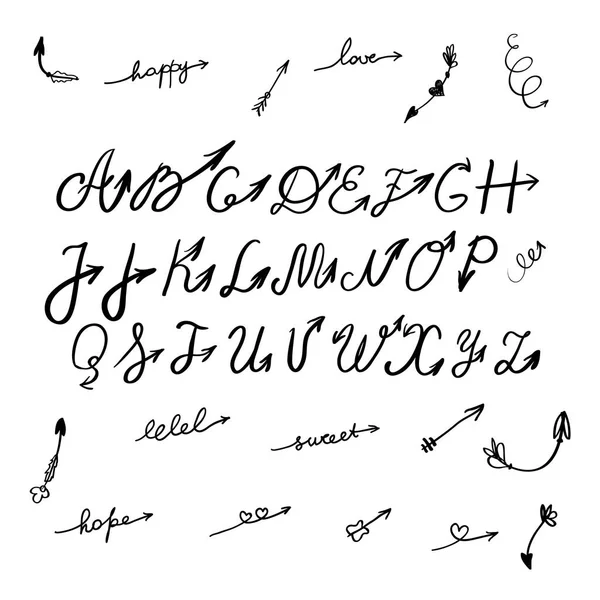 happy love
A B C D E F G H
I J K L M N O P
Q S T U V W X Y Z
sweet
hope